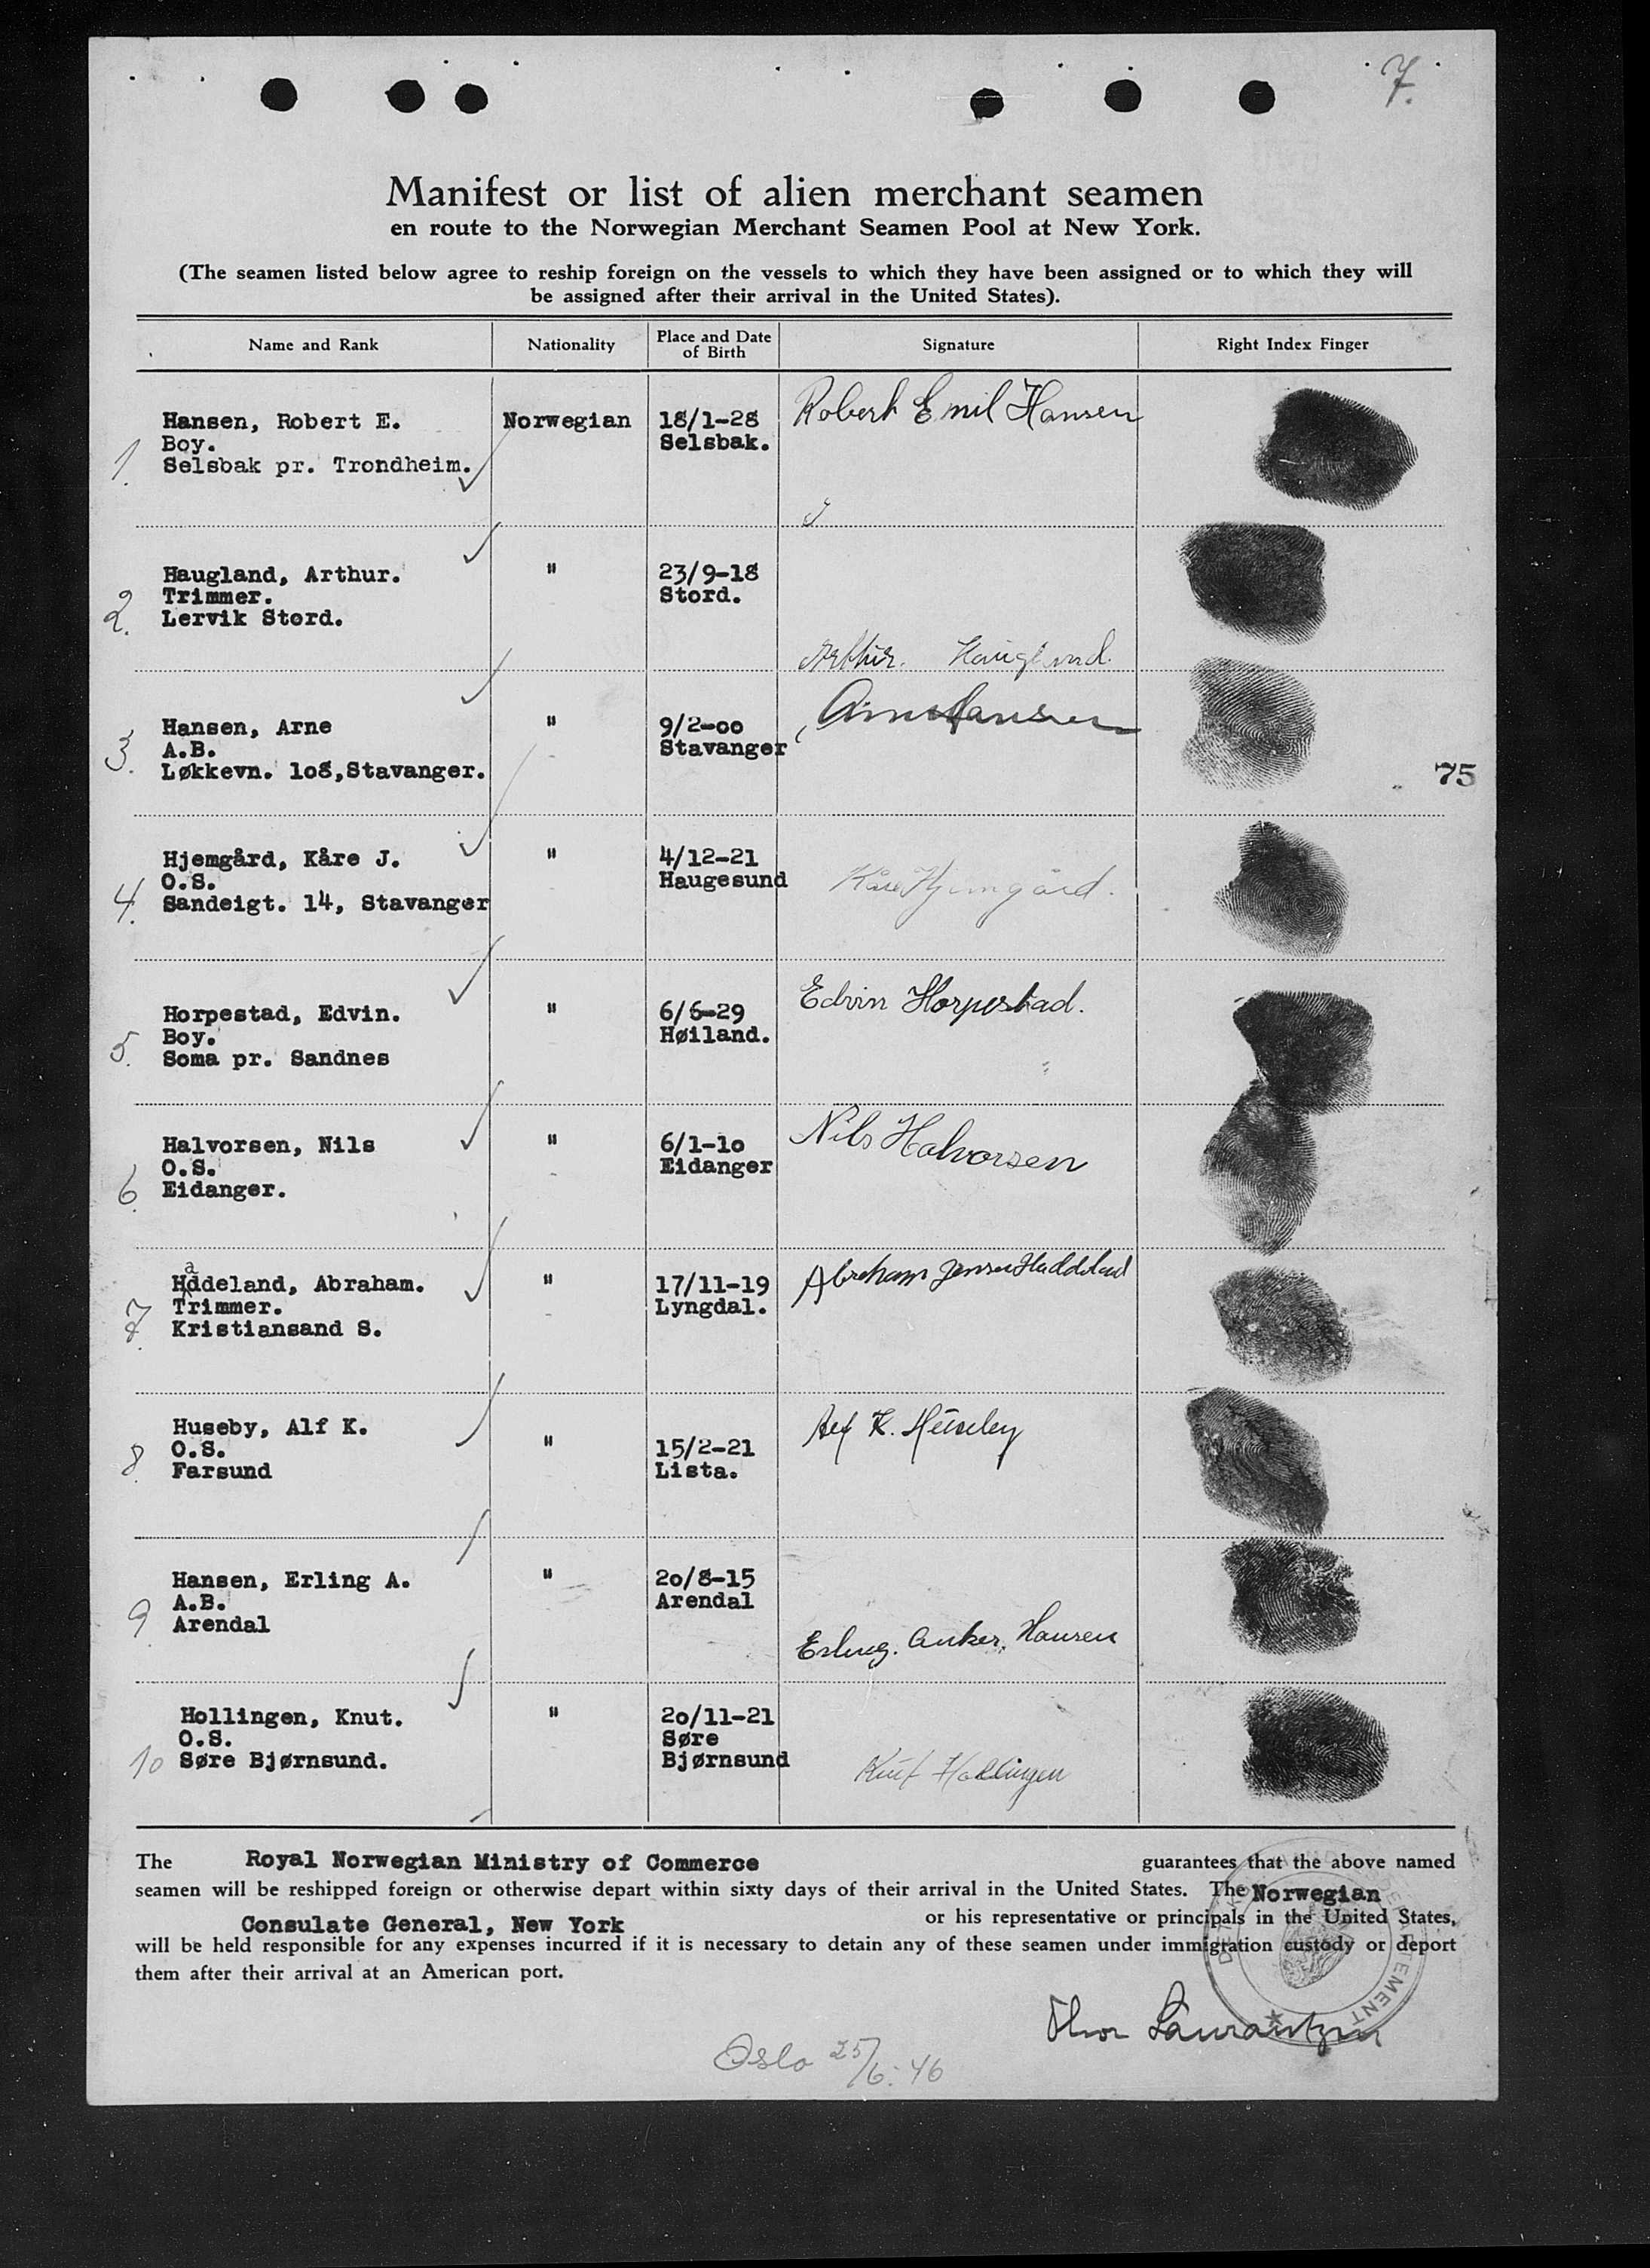 7.
Manifest or list of alien merchant seamen
en route to the Norwegian Merchant Seamen Pool at New York.
(The seamen listed below agree to reship foreign on the vessels to which they have been assigned or to which they will
be assigned after their arrival in the United States).
Name and Rank Nationality Place and Date of Birth Signature Right Index Finger
1. Hansen, Robert E. Norwegian 18/1-28 Robert Emil Hansen
Boy. Selsbak.
Selsbak pr. Trondheim.
2. Haugland, Arthur. " 23/9-18
Trimmer. Stord.
Lervik Stord.
Arthur. Haugland.
3. Hansen, Arne " 9/2-oo Arne Hansen
A.B. Stavanger
Løkkevn. 1o8,Stavanger.
75
4. Hjemgård, Kåre J. " 4/12-21 Kåre Hjemgård.
O.S. Haugesund
Sandeigt. 14, Stavanger
5. Horpestad, Edvin. " 6/6-29 Edvin Horpestad.
Boy. Høiland.
Soma pr. Sandnes
6. Halvorsen, Nils " 6/1-1o Nils Halvorsen
O.S. Eidanger
Eidanger.
7. Haddeland, Abraham. " 17/11-19 Abraham Jensen Haddeland
Trimmer. Lyngdal.
Kristiansand S.
8. Huseby, Alf K. " 15/2-21 Alf K. Huseby
O.S. Lista.
Farsund
9. Hansen, Erling A. " 2o/8-15
A.B. Arendal
Arendal Erling. Anker. Hansen
10 Hollingen, Knut. " 2o/11-21
O.S. Søre
Søre Bjørnsund. Bjørnsund Knut Hollingen
The Royal Norwegian Ministry of Commerce guarantees that the above named
seamen will be reshipped foreign or otherwise depart within sixty days of their arrival in the United States. The Norwegian
Consulate General, New York or his representative or principals in the United States,
will be held responsible for any expenses incurred if it is necessary to detain any of these seamen under immigration custody or deport
them after their arrival at an American port.
Thor Laurantzen
Oslo 25/6.46